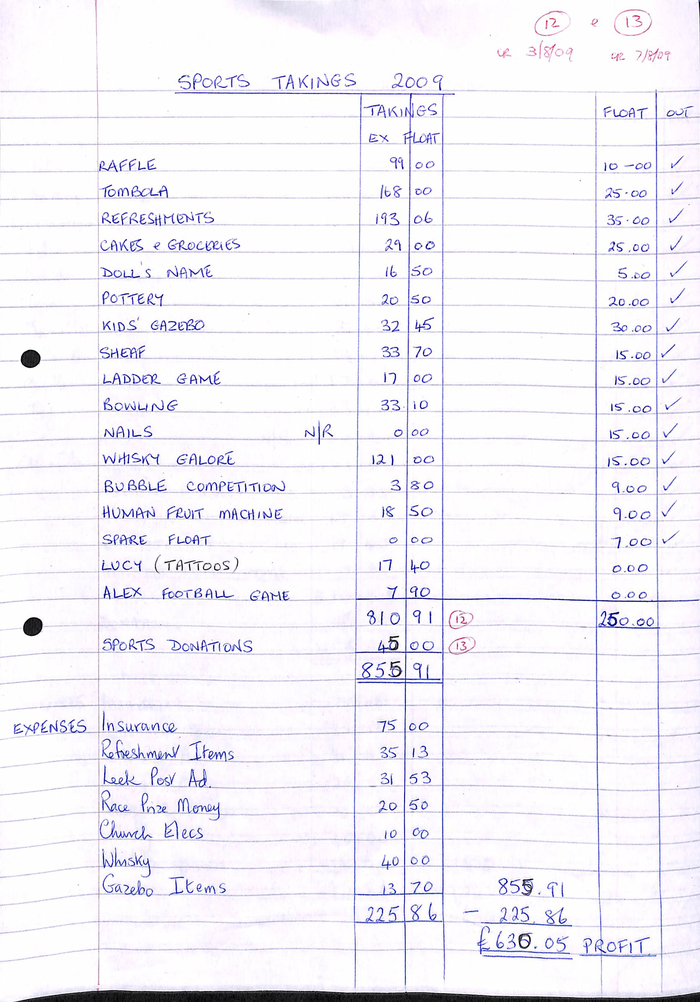 12 e 13
UR 3/8/09 UR 7/8/09
SPORTS TAKINGS 2009
TAKINGS FLOAT OUT
EX FLOAT
RAFFLE 99 00 10-00 ✓
TOMBOLA 168 00 25.00 ✓
REFRESHMENTS 193 06 35.00 ✓
CAKES e GROCERIES 29 00 25.00 ✓
DOLL'S NAME 16 50 5.00 ✓
POTTERY 20 50 20.00 ✓
KIDS' GAZEBO 32 45 30.00 ✓
SHEAF 33 70 15.00 ✓
LADDER GAME 17 00 15.00 ✓
BOWLING 33.10 15.00 ✓
NAILS N/R 0 00 15.00 ✓
WHISKY GALORE 121 00 15.00 ✓
BUBBLE COMPETITION 3 80 9.00 ✓
HUMAN FRUIT MACHINE 18 50 9.00 ✓
SPARE FLOAT 0 00 7.00 ✓
LUCY (TATTOOS) 17 40 0.00
ALEX FOOTBALL GAME 7 90 0.00
810 91 12 250.00
SPORTS DONATIONS 45 00 13
855 91
EXPENSES Insurance 75 00
Refreshment Items 35 13
Leek Post Ad. 31 53
Race Prize Money 20 50
Church Elecs 10 00
Whisky 40 00
Gazebo Items 13 70 855.91
225 86 - 225.86
£630.05 PROFIT